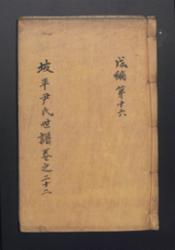 淡編 第十六
坡平尹氏世譜卷之二十二